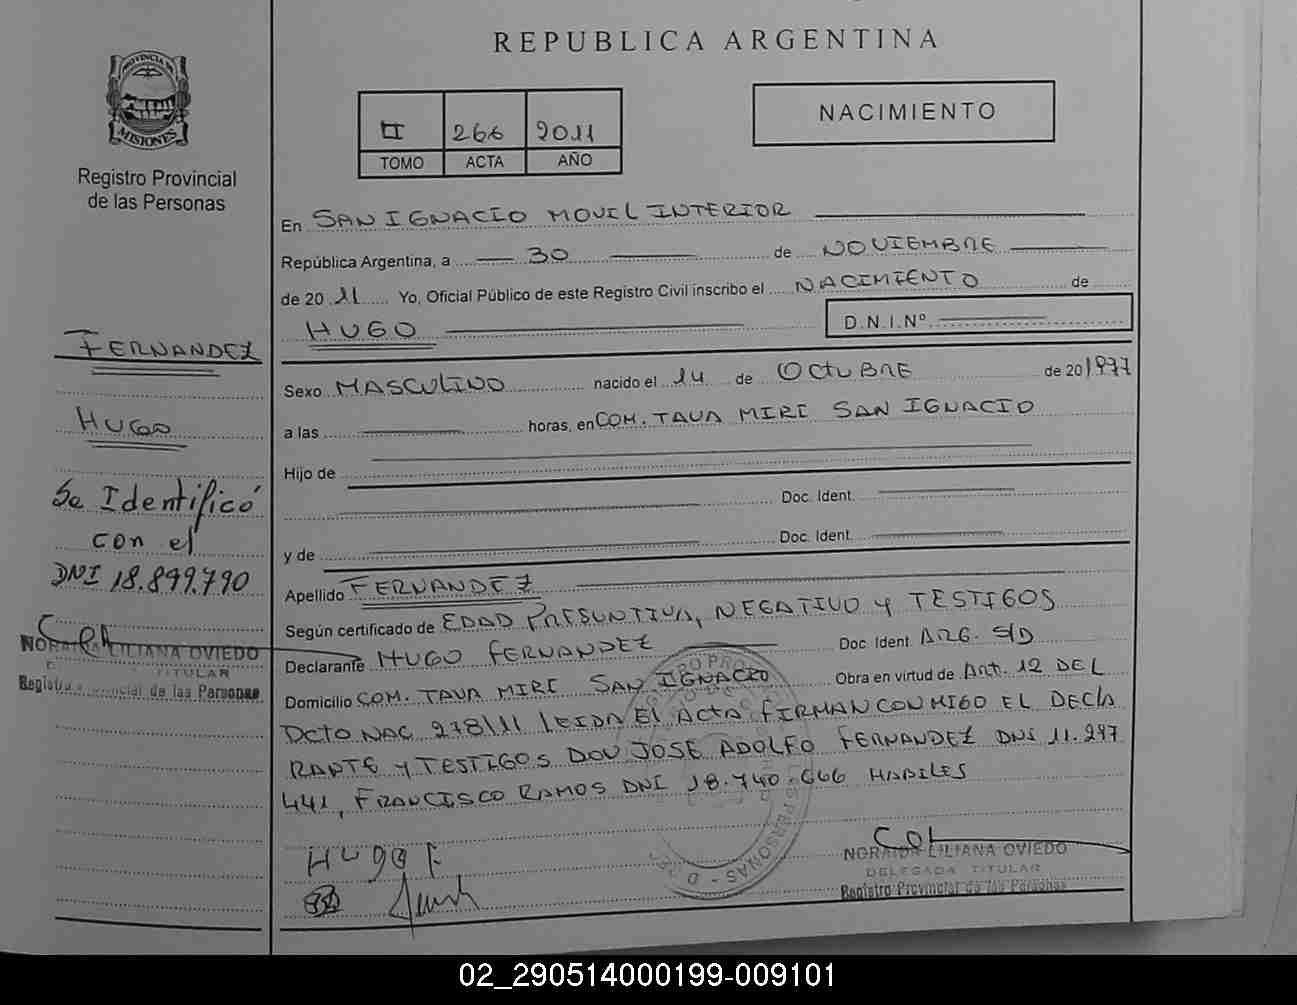 REPUBLICA ARGENTINA
NACIMIENTO
PROVINCIA DE
MISIONES
Registro Provincial
de las Personas
II 266 2011
TOMO ACTA AÑO
En SAN IGNACIO MOVIL INTERIOR
República Argentina, a 30 de NOVIEMBRE
de 20 11 Yo, Oficial Público de este Registro Civil inscribo el NACIMIENTO de
HUGO D.N.I.Nº
FERNANDEZ
HUGO
Se Identificó
con el
DNI 18.899.790
NORAIDA LILIANA OVIEDO
TITULAR
Registro Provincial de las Personas
Sexo MASCULINO nacido el 14 de OCTUBRE de 20 1977
a las horas, en COM. TAVA MIRI SAN IGNACIO
Hijo de
Doc. Ident.
y de Doc. Ident.
Apellido FERNANDEZ
Según certificado de EDAD PRESUNTIVA, NEGATIVO Y TESTIGOS
Declarante HUGO FERNANDEZ Doc Ident. ARG. S/D
Domicilio COM. TAVA MIRI SAN IGNACIO Obra en virtud de Art. 12 DEL
DCTO NAC 278/11 LEIDA El ACTA FIRMAN CONMIGO EL DECLA
RANTE Y TESTIGOS DON JOSE ADOLFO FERNANDEZ DNI 11.297
441, FRANCISCO RAMOS DNI 18.740.666 HABILES
HUGO F
NORAIDA LILIANA OVIEDO
DELEGADA TITULAR
Registro Provincial de las Personas
02_290514000199-009101